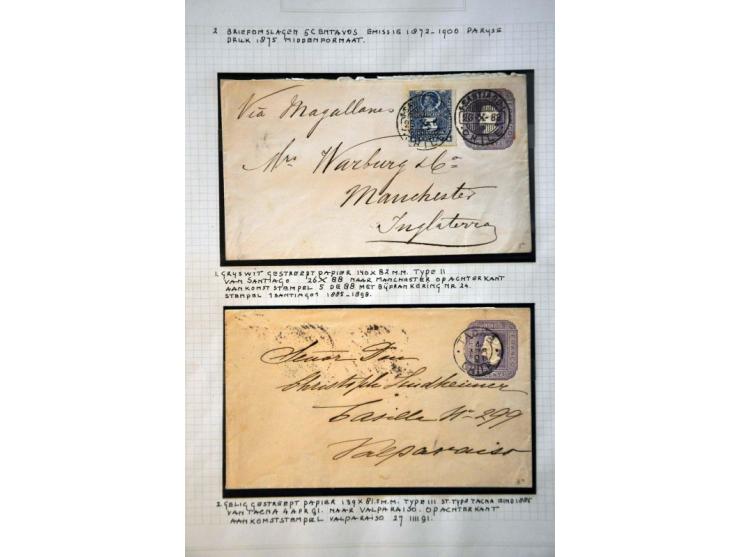 2 BRIEFOMSLAGEN 5 CENTAVOS EMISSIE 1872-1900 PARYSE
DRUK 1875 MIDDENFORMAAT.
Via Magallanes
SANTIAGO
26 X 88
CHILE
Mrs Warburg & Co
Manchester
Inglaterra
1. GRYSWIT GESTREEPT PAPIER 140 X 82 M.M. TYPE II
VAN SANTIAGO 26 X 88 NAAR MANCHESTER OP ACHTERKANT
AANKOMST STEMPEL 5 DE 88 MET BYFRANKERING NR 24.
STEMPEL 1 SANTIAGO 1 1885-1898.
CHILE
Señor Don
Christoph Lindheimer
Casilla No 299
Valparaiso
2. GELIG GESTREEPT PAPIER 139 X 81.5 M.M. TYPE III ST. TYPE TACNA 1885
VAN TACNA 4 APR 91. NAAR VALPARAISO. OP ACHTERKANT
AANKOMSTSTEMPEL VALPARAISO 27 IIII 91.